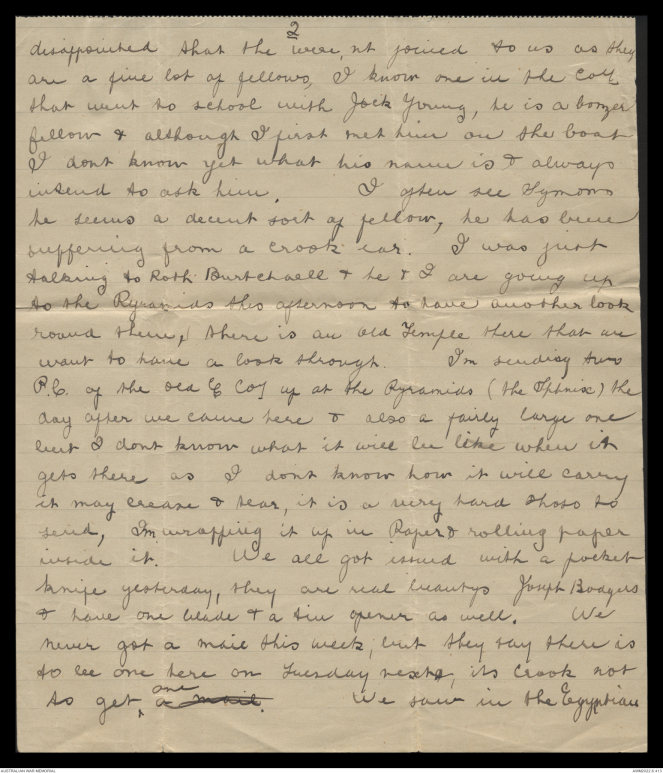 2
disappointed that the were, nt joined to us as they
are a fine lot of fellows, I know one in the Coy
that went to school with Jock Young, he is a bonzer
fellow & although I first met him on the boat
I dont know yet what his name is & always
intend to ask him. I often see Symons
he seems a decent sort of fellow, he has been
suffering from a crook ear. I was just
talking to Roth Burtchaell & he & I are going up
to the Pyramids this afternoon to have another look
round them, there is an old Temple there that we
want to have a look through. I'm sending two
P.C. of the old E Coy up at the Pyramids (the Sphnix) the
day after we came here & also a fairly large one
but I dont know what it will be like when it
gets there as I dont know how it will carry
it may crease & tear, it is a very hard photo to
send, Im wrapping it up in Paper & rolling paper
inside it. We all got issued with a pocket
knife yesterday, they are real beautys Joseph Rodgers
& have one blade & a tin opener as well. We
never got a mail this week, but they say there is
to be one here on Tuesday next, its crook not
to get one a mail. We saw in the Egyptian
AUSTRALIAN WAR MEMORIAL